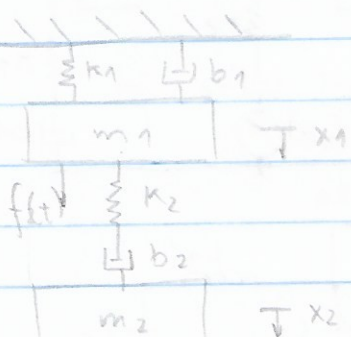 k1 b1
m1 x1
f(t) k2
b2
m2 x2